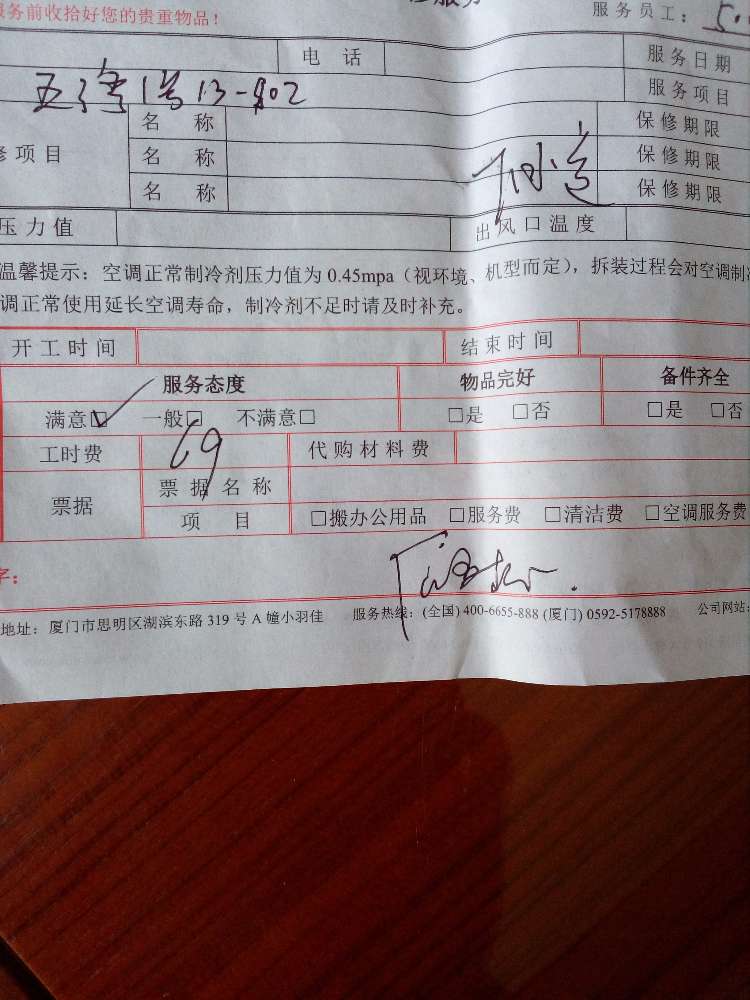 服务前收拾好您的贵重物品！ 服务员工：
电 话 服务日期
1号13-802 服务项目
名 称 保修期限
修项目 名 称 保修期限
名 称 保修期限
压力值 出风口温度
温馨提示：空调正常制冷剂压力值为 0.45mpa（视环境、机型而定），拆装过程会对空调制
调正常使用延长空调寿命，制冷剂不足时请及时补充。
开工时间 结束时间
服务态度 物品完好 备件齐全
满意☑ 一般□ 不满意□ □是 □否 □是 □否
工时费 69 代购材料费
票据 票据名称
项 目 □搬办公用品 □服务费 □清洁费 □空调服务费
字：
地址：厦门市思明区湖滨东路 319 号 A 幢小羽佳 服务热线：(全国) 400-6655-888 (厦门) 0592-5178888 公司网站：